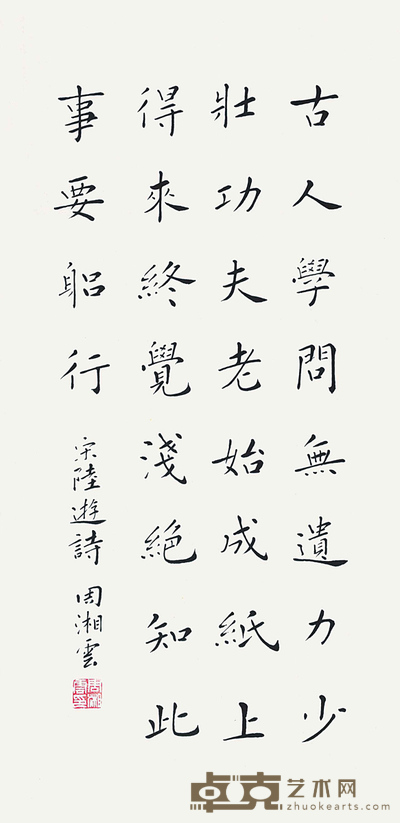 古人學問無遺力少
壯功夫老始成紙上
得來終覺淺絶知此
事要躳行
宋陸遊詩 周湘雲
卓克艺术网
zhuokearts.com